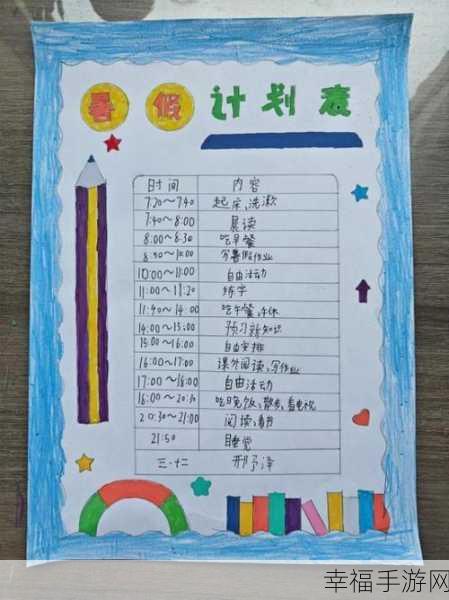 暑假计划表
时间 内容
7:20~7:40 起床、洗漱
7:40~8:00 晨读
8:00~8:30 吃早餐
8:30~10:00 写暑假作业
10:00~11:00 自由活动
11:00~11:20 练字
11:40~14:00 吃午餐、午休
14:00~15:00 预习新知识
15:00~16:00 自由安排
16:00~17:00 课外阅读、写作业
17:00~18:00 自由活动
18:00~20:30 吃晚饭、散步、看电视
20:30~21:00 阅读、看书
21:50 睡觉
三·十二 邢予泽
幸福手游网